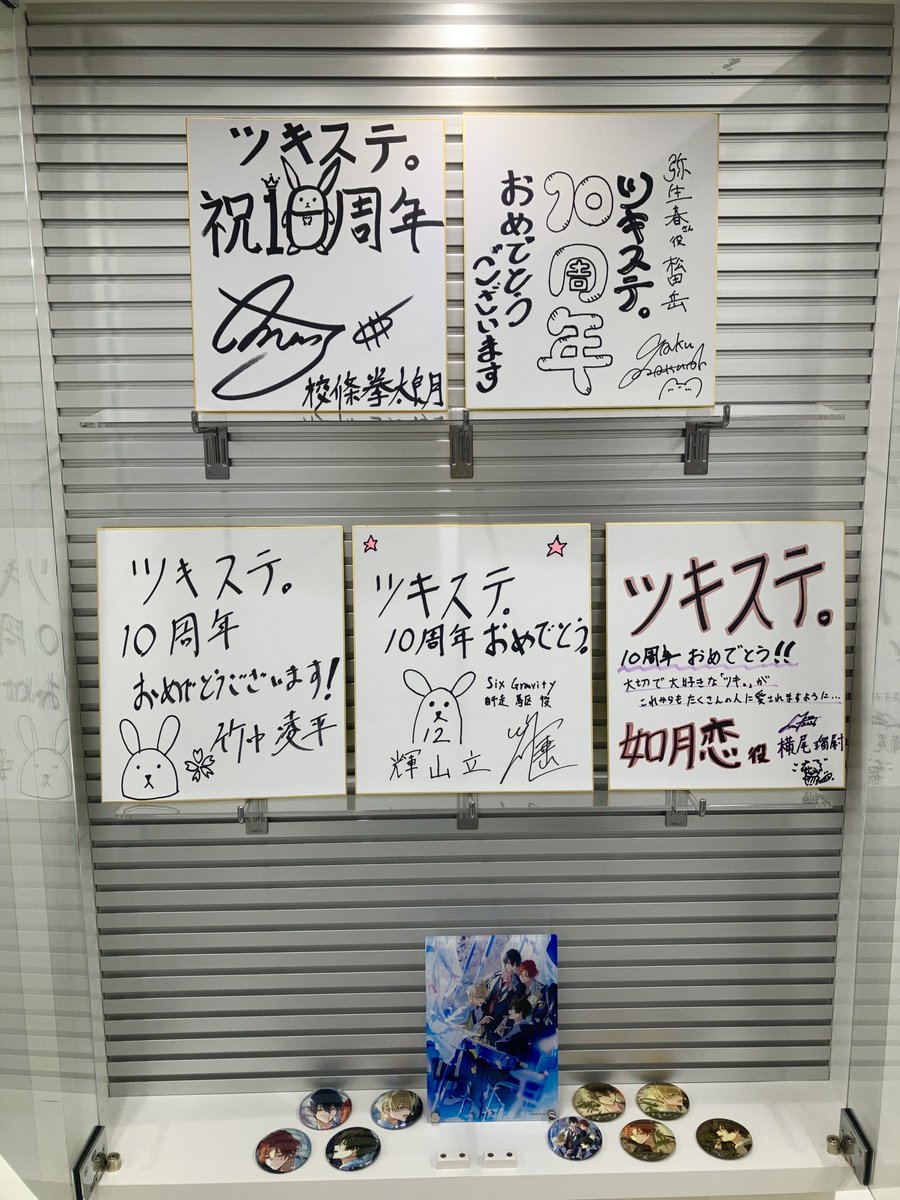 ツキステ。
祝10周年
校條拳太朗
弥生春さん役 松田岳
ツキステ。
10周年
おめでとう
ございます
Gaku
ツキステ。
10周年
おめでとうございます!
竹中凌平
ツキステ。
10周年おめでとう。
Six Gravity
師走 駆 役
12
輝山立
ツキステ。
10周年おめでとう!!
大切で大好きな「ツキ。」が
これからもたくさんの人に愛されますように…
如月恋役
横尾瑠尉